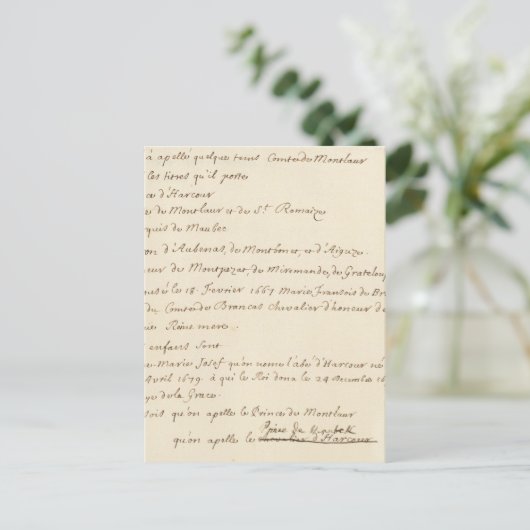 à apellé quelque tems Comte de Montlaur
les titres qu'il porte
ce d'Harcour
e de Montlaur et de St. Romaize
quis de Maubec
on d'Aubenas, de Montbonet, et d'Aiguze.
eur de Montpezat, de Miremande, de Grateloup
ousé le 18. Fevrier 1667 Marie Fransoise de Br
du Comte de Brancas Chevalier d'honeur de
ne Reine mere.
enfans sont
e-Marie Josef qu'on nome l'abé d'Harcour né
Avril 1679. à qui le Roi dona le 24 Decembre 16
ye de la Grace.
sois qu'on apelle le Prince de Montlaur
Prince de
qu'on apelle le Chevalier d'Harcour